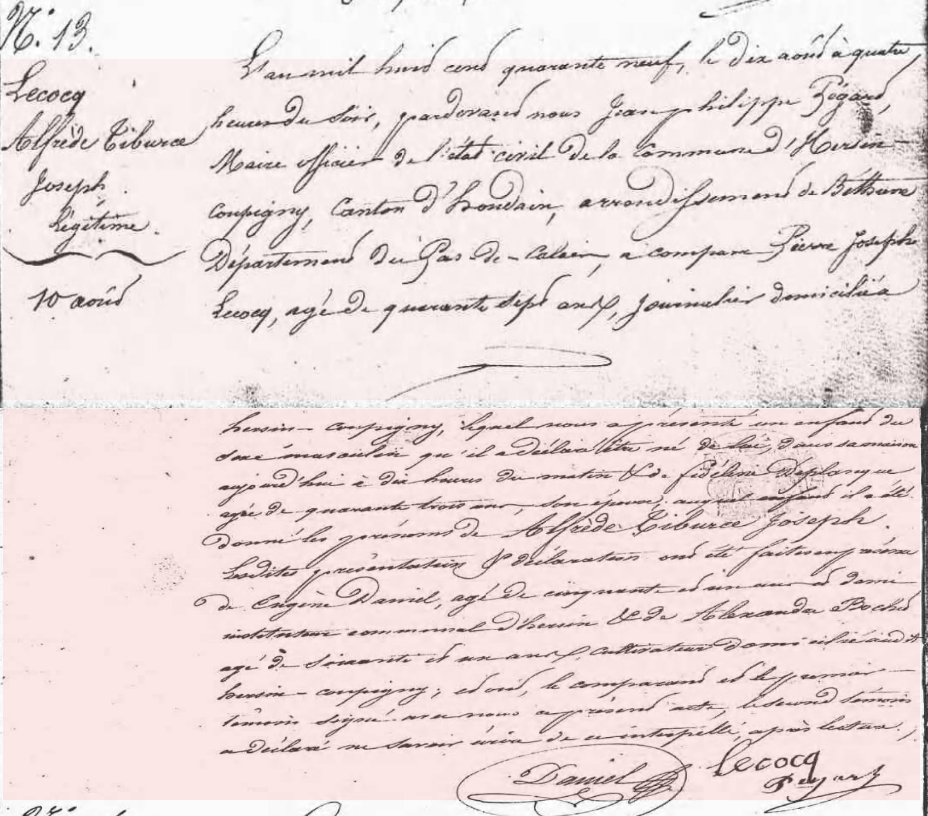 N.° 13.
Lecocq
Alfrède Tiburce
Joseph.
Légitime.
10 août
L'an mil huit cent quarante neuf, le dix août à quatre
heures du soir, pardevant nous Jean philippe Pégard,
Maire officier de l'état civil de la commune d'Hersin
coupigny, Canton d'houdain, arrondissement de Béthune
Département du Pas-de-Calais, a comparu Pierre Joseph
Lecocq, agé de quarante sept ans, Journalier domicilié à
hersin-coupigny, lequel nous a présenté un enfant du
sexe masculin qu'il a déclaré être né de lui, dans sa maison
aujourd'hui à dix heures du matin & de fidéline Deplanque
agée de quarante trois ans, son épouse; auquel enfant il a été
donné les prénoms de Alfrède Tiburce Joseph.
Lesdites présentation & déclaration ont été faites en présence
de Eugène Daniel, agé de cinquante et un ans et demi
instituteur communal d'hersin & de Alexandre Boched
agé de soixante et un ans, cultivateur domicilié audit
hersin-coupigny; et ont, le comparant et le premier
témoin signé avec nous le présent acte, le second témoin
a déclaré ne savoir écrire de ce interpellé, après lecture,
Daniel Lecocq
Pégard